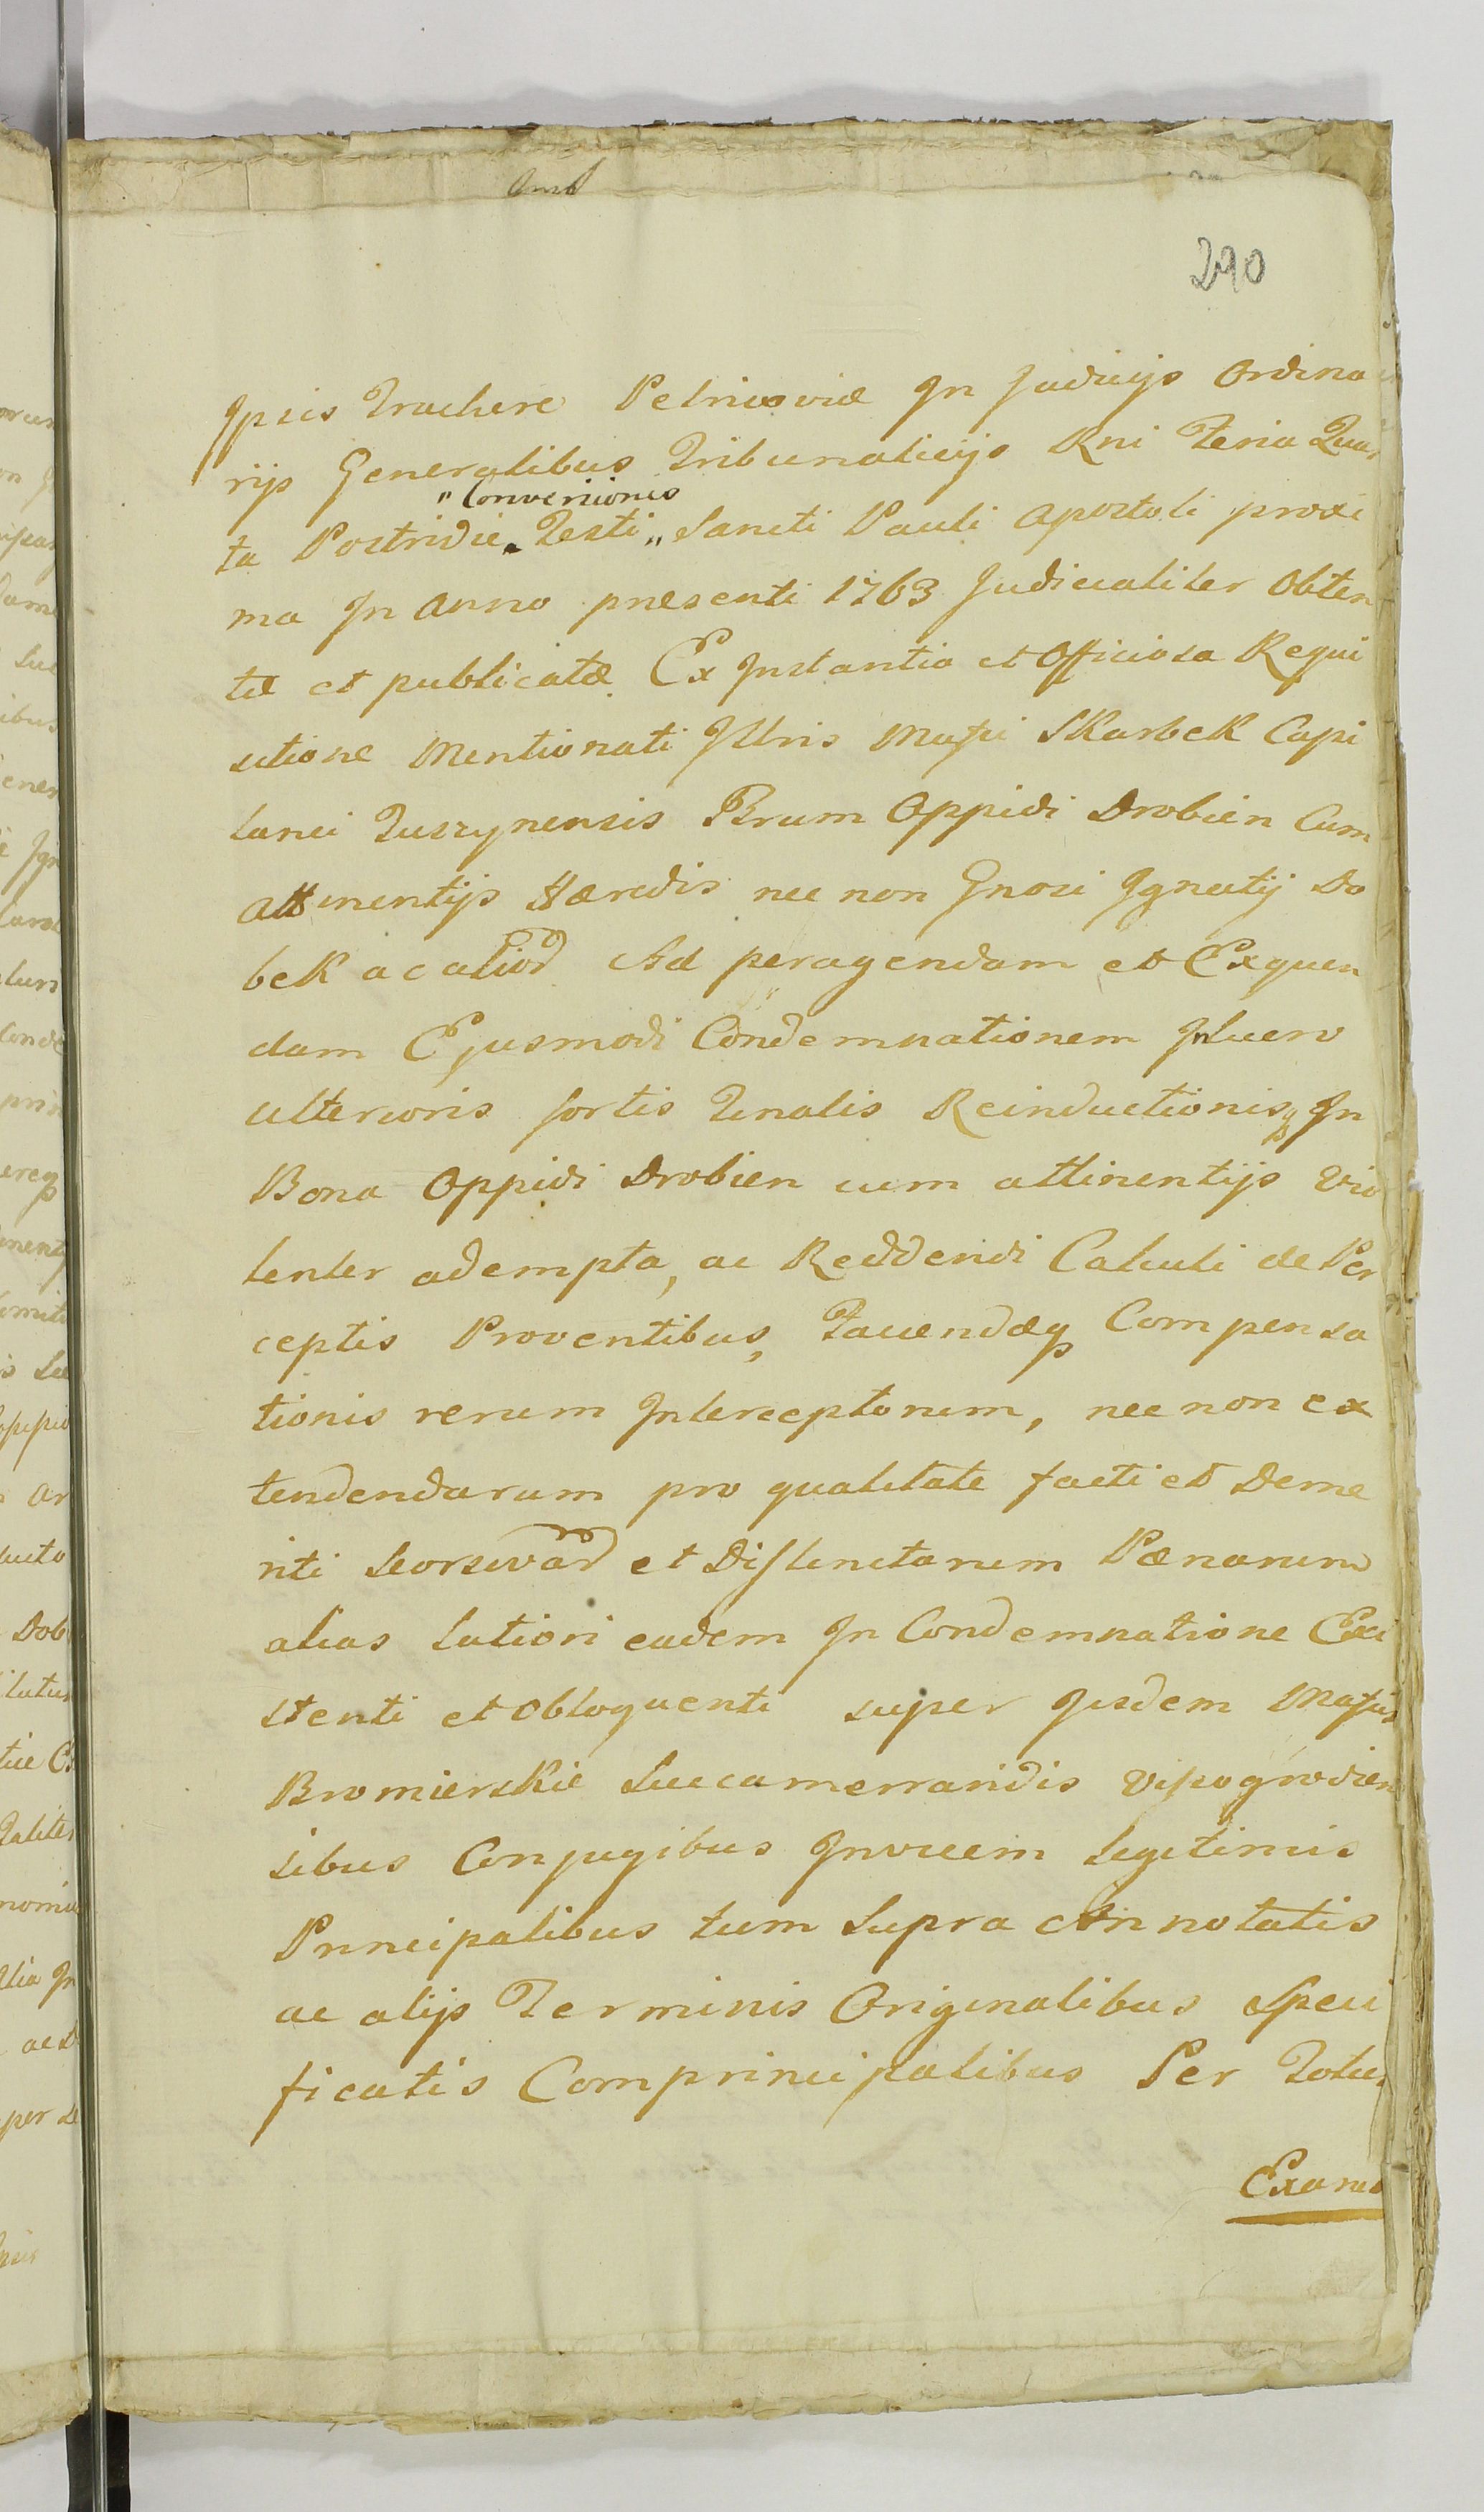 290
Ipsis Trachere Petricoviæ In Judicijs Ordina
rijs Generalibus Tribunalicijs Rni Feria Quar
"Conversionis
ta Postridie Festi " Sancti Pauli Apostoli proxi
ma In Anno presenti 1763 Judicialiter Obten
tæ et publicatæ Ex Instantia et Officiosa Requi
sitione Mentionati Illris Skarbek Capi
tanei Brum Oppidi Drobien Cum
Attinentijs Hæredis nec non Gnosi Ignatij Do
bek ac aliod Ad peragendam et Exquen
dam Ejusmodi Condemnationem Intuen
ulterioris fortis Tenalis Reinductionisq In
Bona Oppidi Drobien cum attinentijs Vio
lenter adempta, ac Reddendi Calculi de Per
ceptis Proventibus, Compensa
tionis rerum Interceptorum, nec non ex
tendendarum pro qualitate facti et Deme
riti et Distinctarum Pænarum
alias latiori eadem In Condemnatione Exi
stenti et Obloquenti super Iisdem
Bromierskie Succamerraridis Vissogrodien
sibus Conjugibus Invicem legitimis
Principalibus tum Supra Annotatis
ac alijs Terminis Originalibus Speci
ficatis Comprincipalibus Per Totu